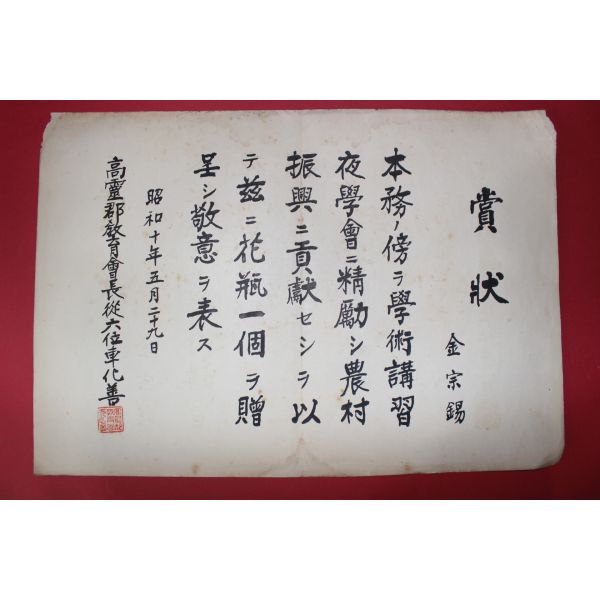 賞狀
金宗錫
本務ノ傍ラ學術講習
夜學會ニ精勵シ農村
振興ニ貢獻セシラ以
テ茲ニ花瓶一個ヲ贈
呈シ敬意ヲ表ス
昭和十年五月二十九日
高靈郡敎育會長從六位車化善